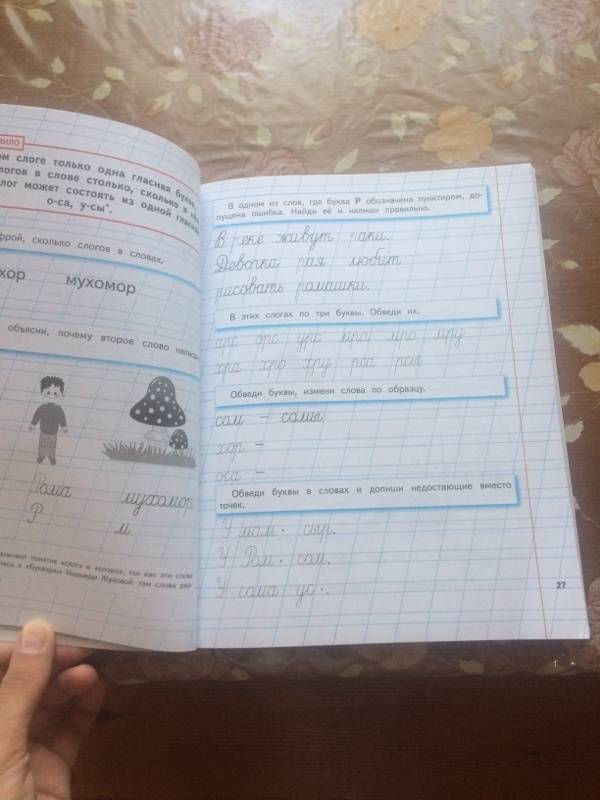 ило
ом слоге только одна гласная буква,
логов в слове столько, сколько в нём
лог может состоять из одной гласной
о-са, у-сы*.
фрой, сколько слогов в словах.
хор мухомор
объясни, почему второе слово написа
Рома мухомор
Р м
«Букварю» Надежды Жуковой: там слова раз
В одном из слов, где буква Р обозначена пунктиром, до-
пущена ошибка. Найди её и напиши правильно.
В реке живут раки.
Девочка рая любит
рисовать ромашки.
В этих слогах по три буквы. Обведи их.
арс орс урс мра мро мру
хра хро хру рса рсы
Обведи буквы, измени слова по образцу.
сом – сомы
хор –
оса –
Обведи буквы в словах и допиши недостающие вместо
точек.
У мам. сыр.
У Ром. сом.
У сома ус..
27